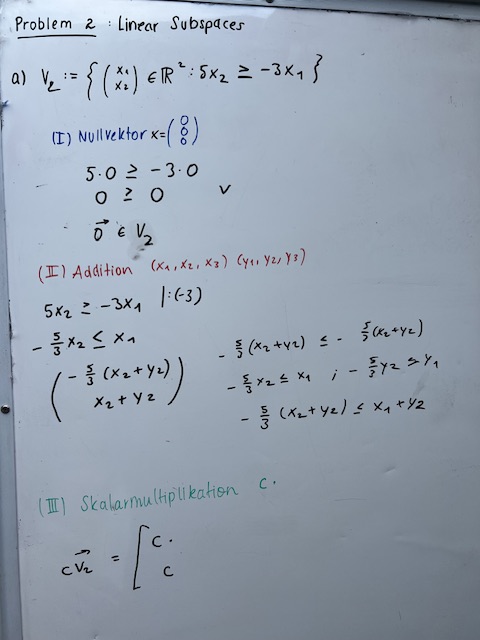 Problem 2 : Linear Subspaces
a) V₂ := { (x₁ x₂) ∈ ℝ² : 5x₂ ≥ -3x₁ }
(I) Nullvektor x = (0 0 0)
5·0 ≥ -3·0
0 ≥ 0 v
0⃗ ∈ V₂
(II) Addition (x₁, x₂, x₃) (y₁, y₂, y₃)
5x₂ ≥ -3x₁ |:(-3)
-5/3 x₂ ≤ x₁
( -5/3 (x₂+y₂)
x₂ + y₂ )
-5/3 (x₂+y₂) ≤ -5/3 (x₂+y₂)
-5/3 x₂ ≤ x₁ ; -5/3 y₂ ≤ y₁
-5/3 (x₂+y₂) ≤ x₁ + y₂
(III) Skalarmultiplikation c·
c v⃗₂ = [ c·
c